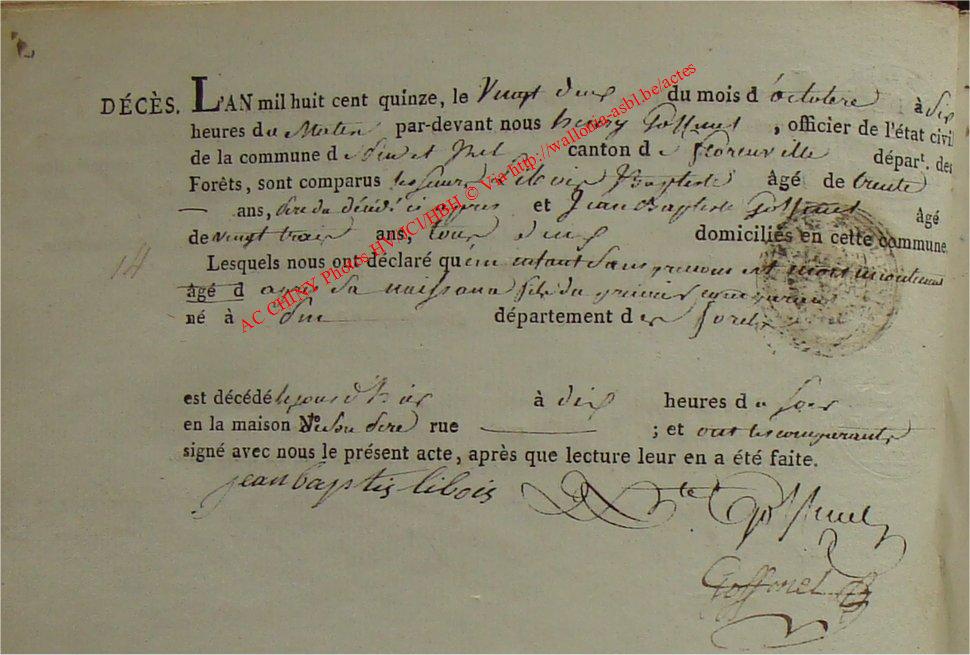 DÉCÈS. L'AN mil huit cent quinze, le Vingt deux du mois d'octobre à dix
heures du Matin par-devant nous henry Goffinet, officier de l'état civil
de la commune d canton de florenville départ. des
Forêts, sont comparus les sieurs Libois Baptiste âgé de trente
— ans, pere du décédé ci apres et Jean Baptiste Goffinet âgé
de vingt trois ans, tous deux domiciliés en cette commune.
14
Lesquels nous ont déclaré qu'un enfant Sans prenoms est mort
âgé d apres Sa naissance fils du premier comparant
né à département des forets
est décédé le jour d'hier à dix heures du soir
en la maison N° de son pere rue — ; et ont les comparants
signé avec nous le présent acte, après que lecture leur en a été faite.
jean baptis libois
Goffinet
Goffinet
AC CHINY Photos HV-JCI/HBH © Via http://wallonia-asbl.be/actes